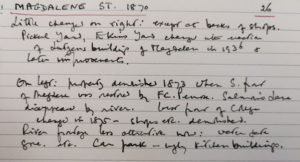 MAGDALENE ST. 1870 26
Little change on right: except at backs of shops.
Pickerel Yard, Ekins Yard change with erection
of Lutyens building of Magdalene in 1930s &
later improvements.
On left: property demolished 1873 when S. front
of Magdalene was restored by F.C. Penrose.
disappeared by river. front of College
change in 1875 - shops etc. demolished.
River frontage less attractive now: water gate
gone. etc. Car park - ugly kitchen buildings.